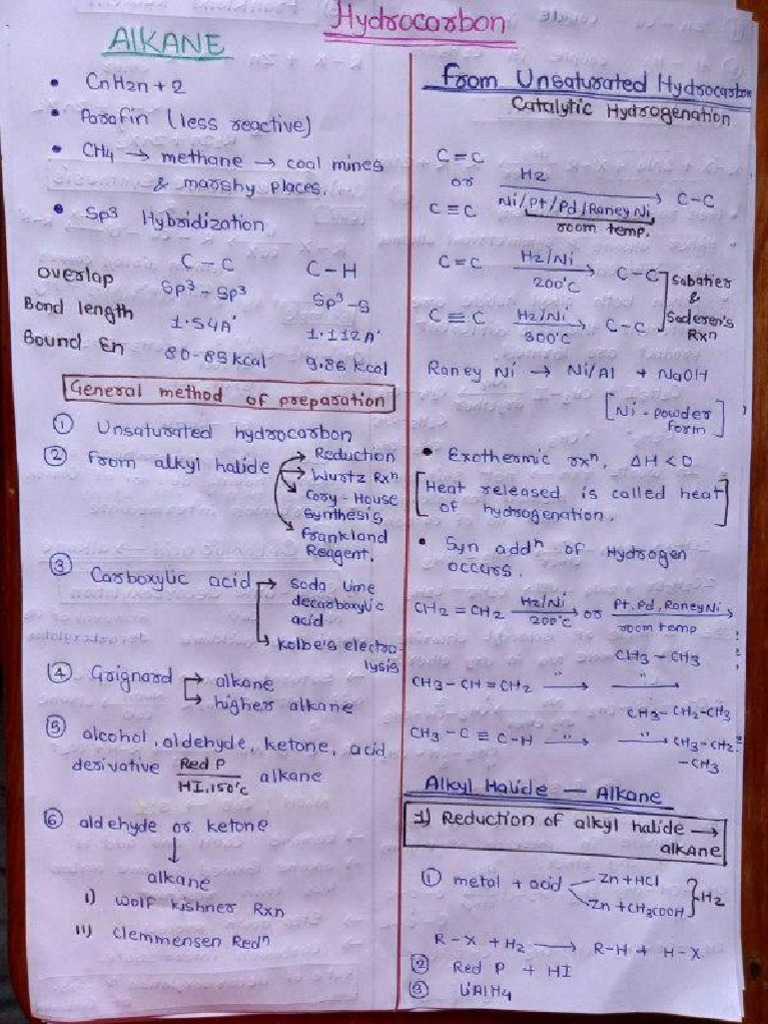 Hydrocarbon
AlKANE
• CnH2n+2
• Parafin (less reactive)
• CH4 → methane → coal mines
& marshy places.
• Sp3 Hybridization
C-C C-H
overlap Sp3-Sp3 Sp3-S
Bond length 1.54A° 1.112A°
Bound En 80-85 kcal 9.86 Kcal
General method of preparation
① Unsaturated hydrocarbon
② from alkyl halide → Reduction
→ Wurtz Rxn
→ Cory-House
Synthesis
→ frankland
Reagent.
③ Carboxylic acid → Soda lime
decarboxylic
acid
→ kolbe's electro-
lysis
④ Grignard → alkane
→ higher alkane
⑤ alcohol, aldehyde, ketone, acid
derivative Red P / HI, 150°C alkane
⑥ aldehyde or ketone
↓
alkane
i) Wolf kishner Rxn
ii) Clemmensen Redn
from Unsaturated Hydrocarbon
Catalytic Hydrogenation
C=C
or H2 → C-C
C≡C Ni/Pt/Pd/Raney Ni,
room temp.
C=C H2/Ni → 200°C C-C
C≡C H2/Ni → 300°C C-C
Sabatier
&
Sederen's
Rxn
Raney Ni → Ni/Al + NaOH
[Ni-powder
form]
• Exothermic rxn, ΔH<0
[Heat released is called heat
of hydrogenation.]
• Syn addn of Hydrogen
occurs.
CH2=CH2 H2/Ni → 200°C or Pt.Pd, Raney Ni → room temp
CH3-CH3
CH3-CH=CH2 " → " →
CH3-CH2-CH3
CH3-C≡C-H " → " → CH3-CH2
-CH3
Alkyl Halide — Alkane
1) Reduction of alkyl halide →
alkane
① metal + acid Zn+HCl
Zn+CH3COOH } H2
R-X + H2 → R-H + H-X
② Red P + HI
③ LiAlH4